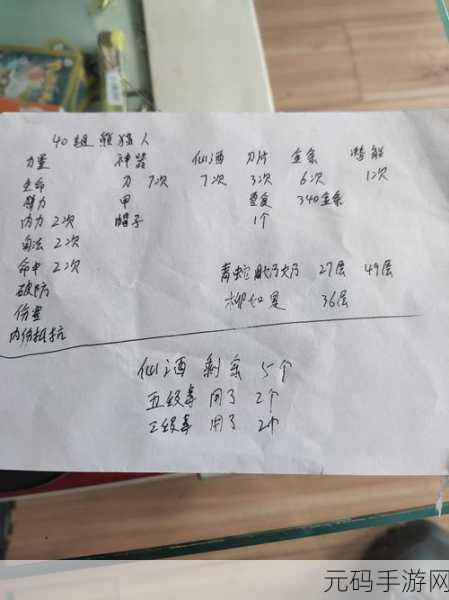 40级 熊猫人
力量 神器 仙酒 刀片 金条 潜能
生命 刀 7次 7次 3次 6次 1次
臂力 甲 重复 340金条
内力 2次 帽子 1个
身法 2次
命中 2次 青蛇 27层 49层
破防 柳如是 36层
伤害
内伤抵抗
仙酒 剩余 5个
五级毒 用了 2个
三级毒 用了 2个
元码手游网